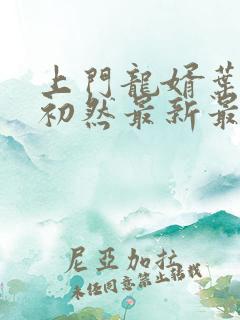 上門龍婿葉
初然最新最
尼亞加拉
未任同意禁止轉載